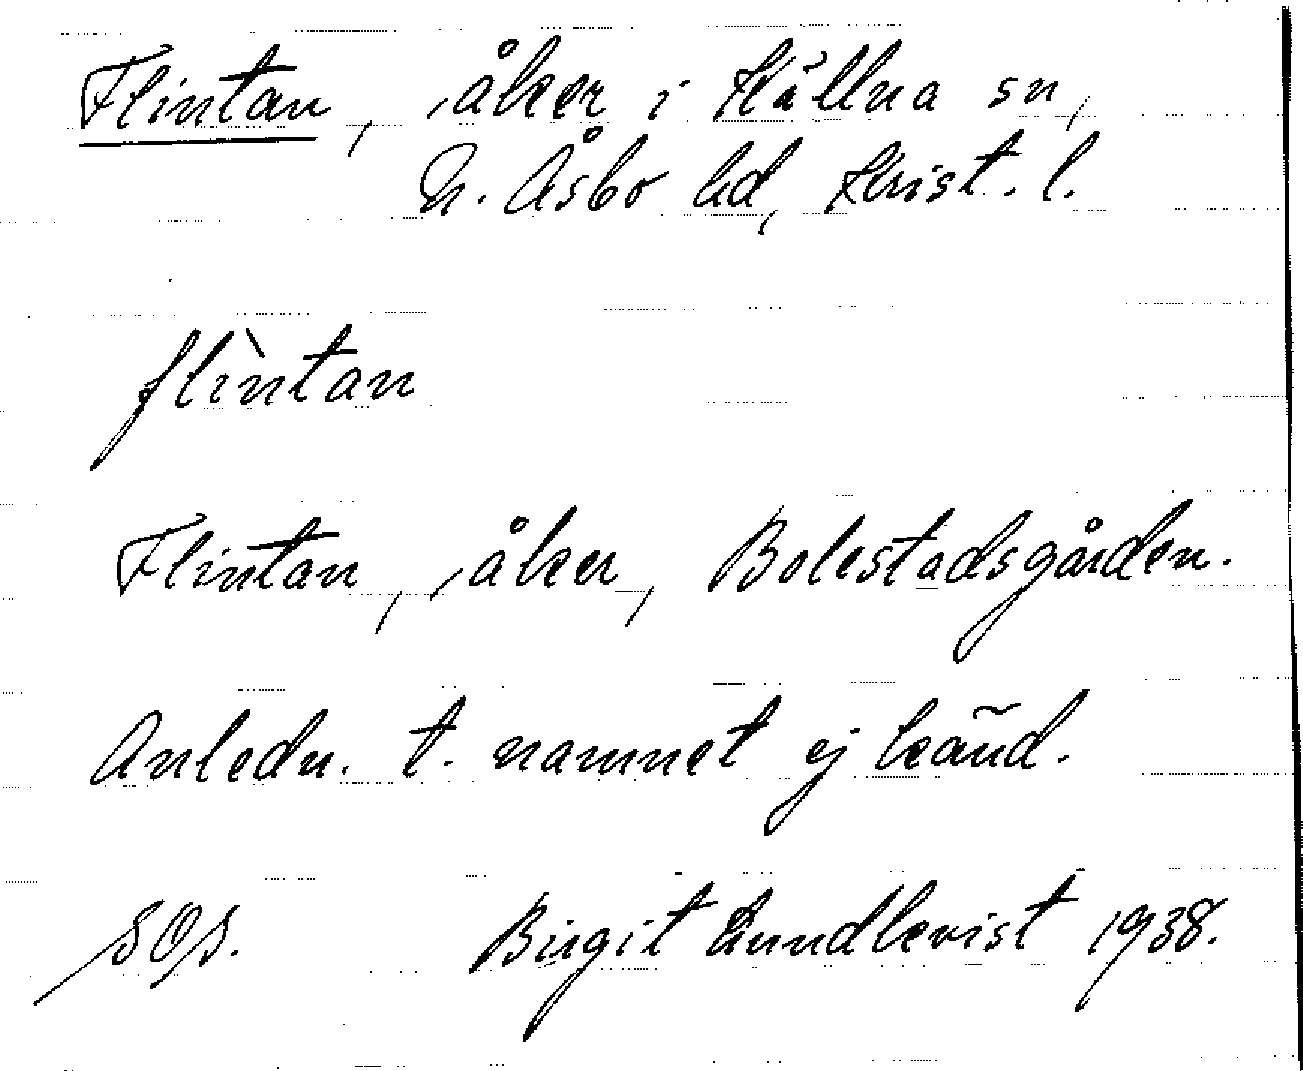 Flintan, åker i Källna sn,
N. Åsbo hd, Krist. l.
flìntan
Flintan, åker, Bolestadsgården.
Anledn. t. namnet ej känd.
SOS. Birgit Lundkvist 1938.